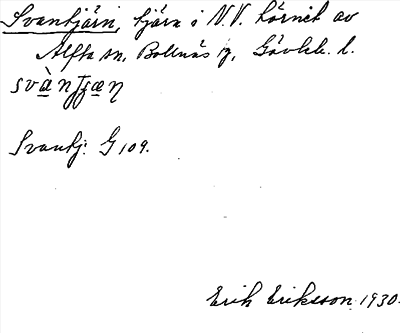 Svantjärn, tjärn i N.V. hörnet av
Alfta sn, Bollnäs tg, Gävleb. l.
svànʈʂæɳ
Svantj. G 109.
Erik Eriksson 1930.